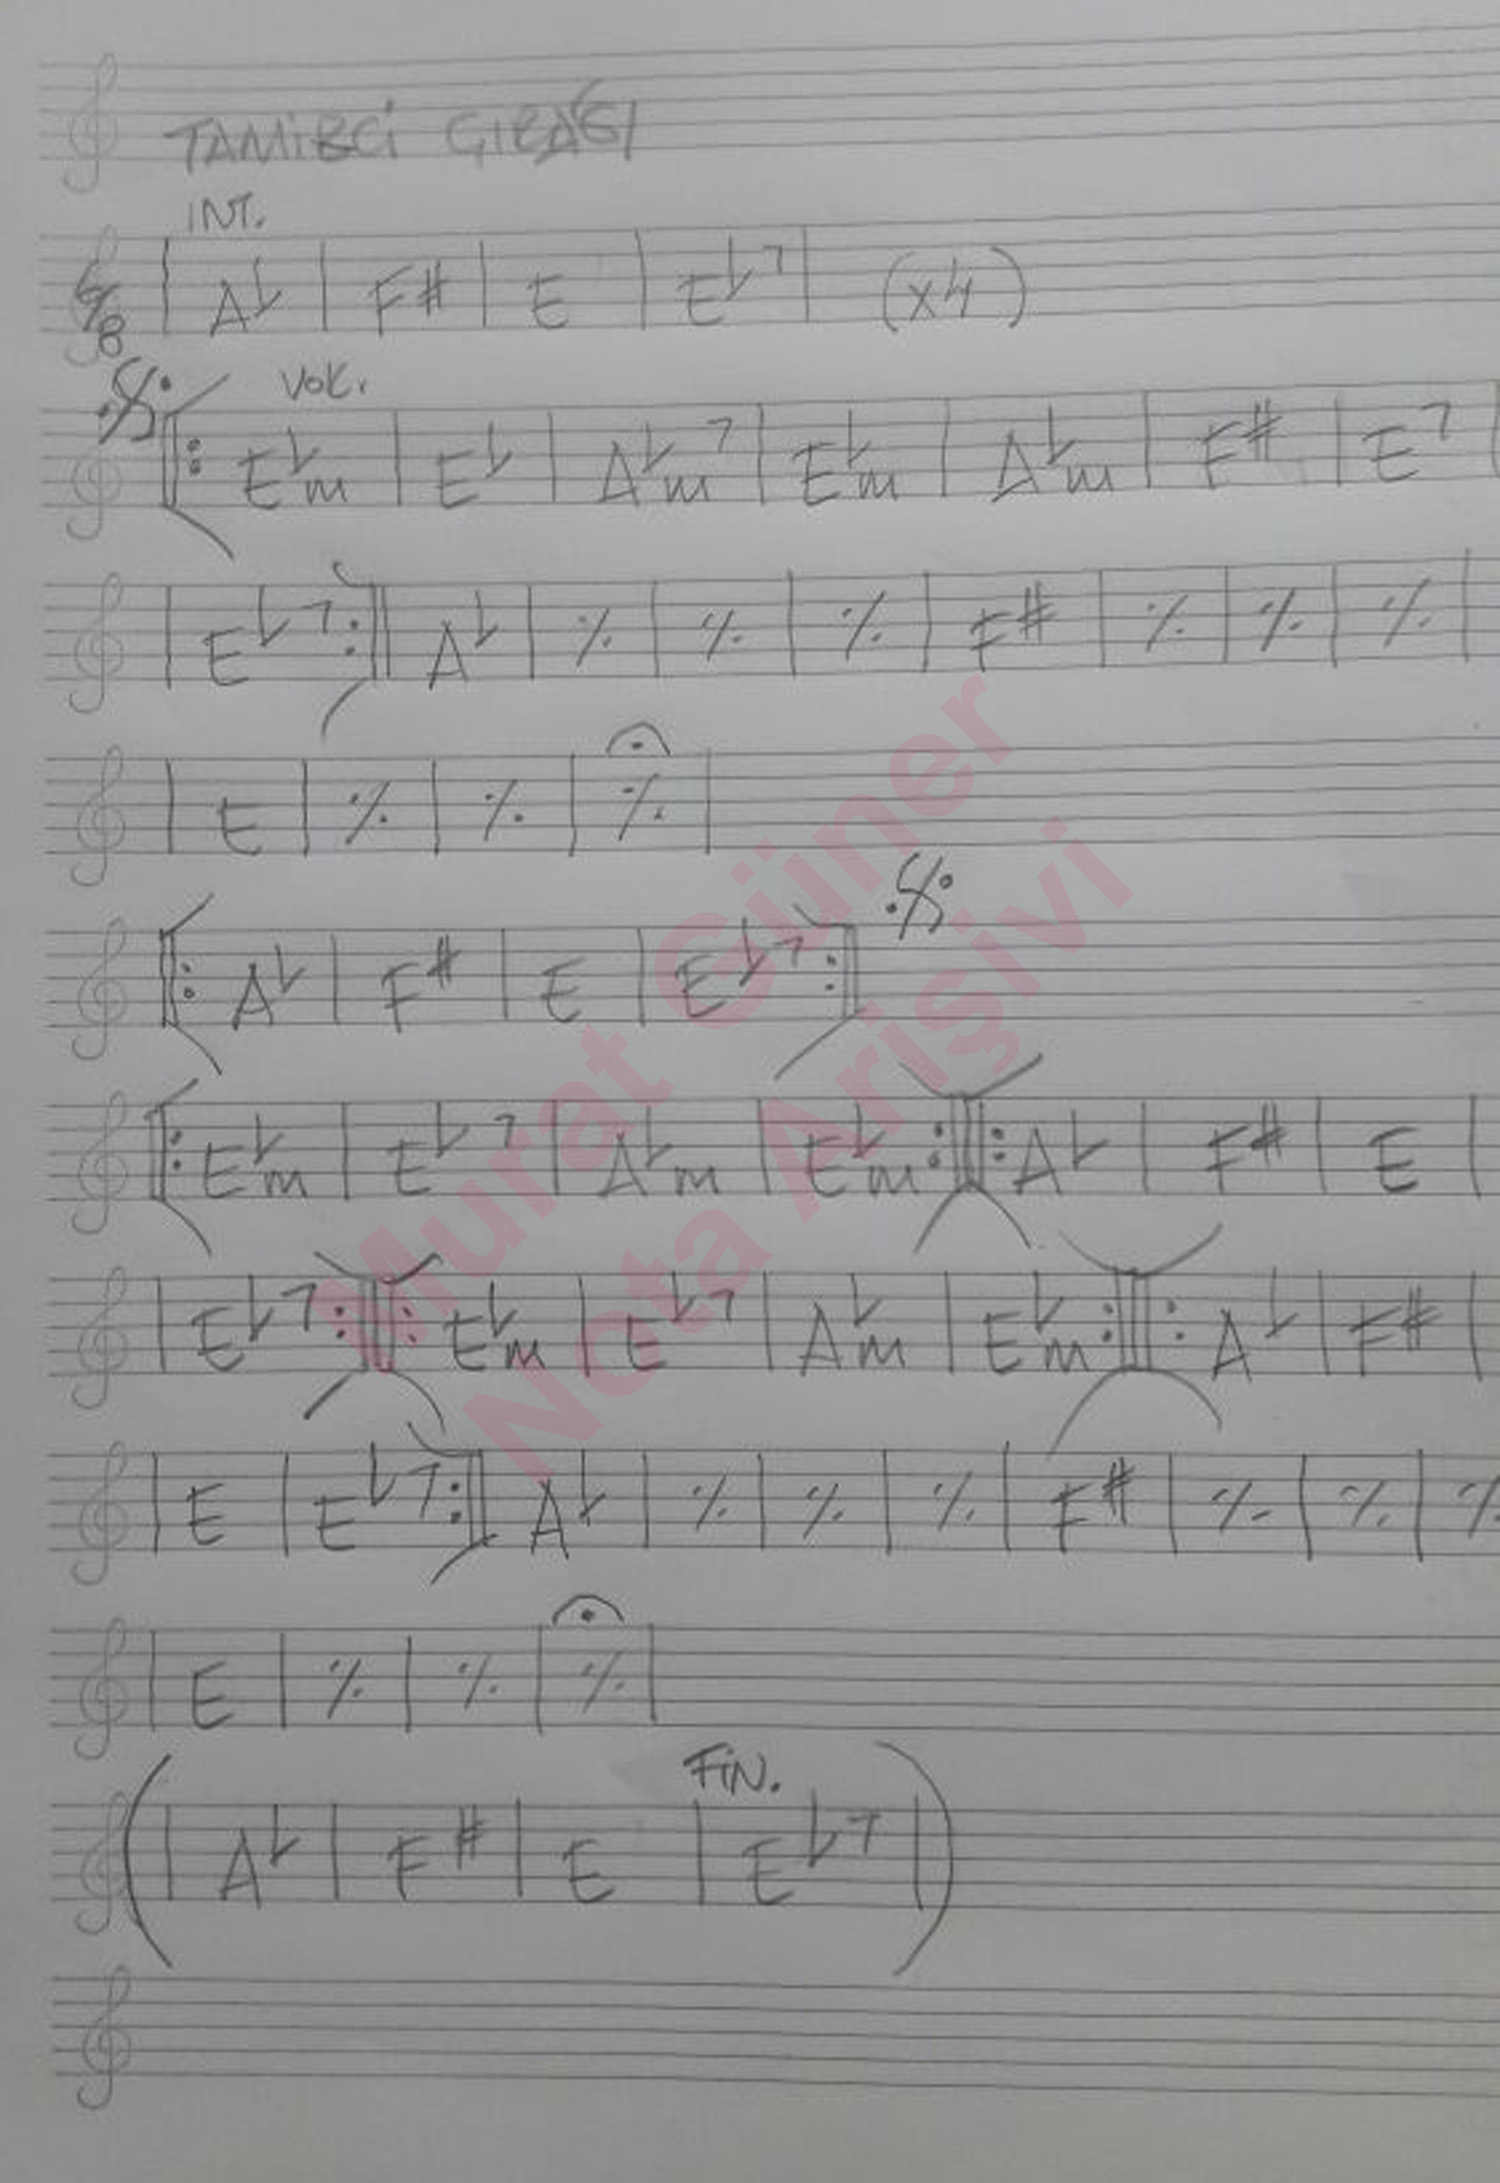 TAMİRCİ ÇIRAĞI
INT.
6/8 | A♭ | F# | E | E♭7 | (x4)
𝄋 VOK.
|: E♭m | E♭ | A♭m7 | E♭m | A♭m | F# | E7 |
| E♭7 :| A♭ | ٪ | ٪ | ٪ | F# | ٪ | ٪ | ٪ |
| E | ٪ | ٪ | ٪ |
|: A♭ | F# | E | E♭7 :| 𝄋
|: E♭m | E♭7 | A♭m | E♭m :||: A♭ | F# | E |
| E♭7 :||: E♭m | E♭7 | A♭m | E♭m :||: A♭ | F# |
| E | E♭7 :| A♭ | ٪ | ٪ | ٪ | F# | ٪ | ٪ | ٪
| E | ٪ | ٪ | ٪ |
FİN.
( | A♭ | F# | E | E♭7 | )
Murat Güner
Nota Arişivi